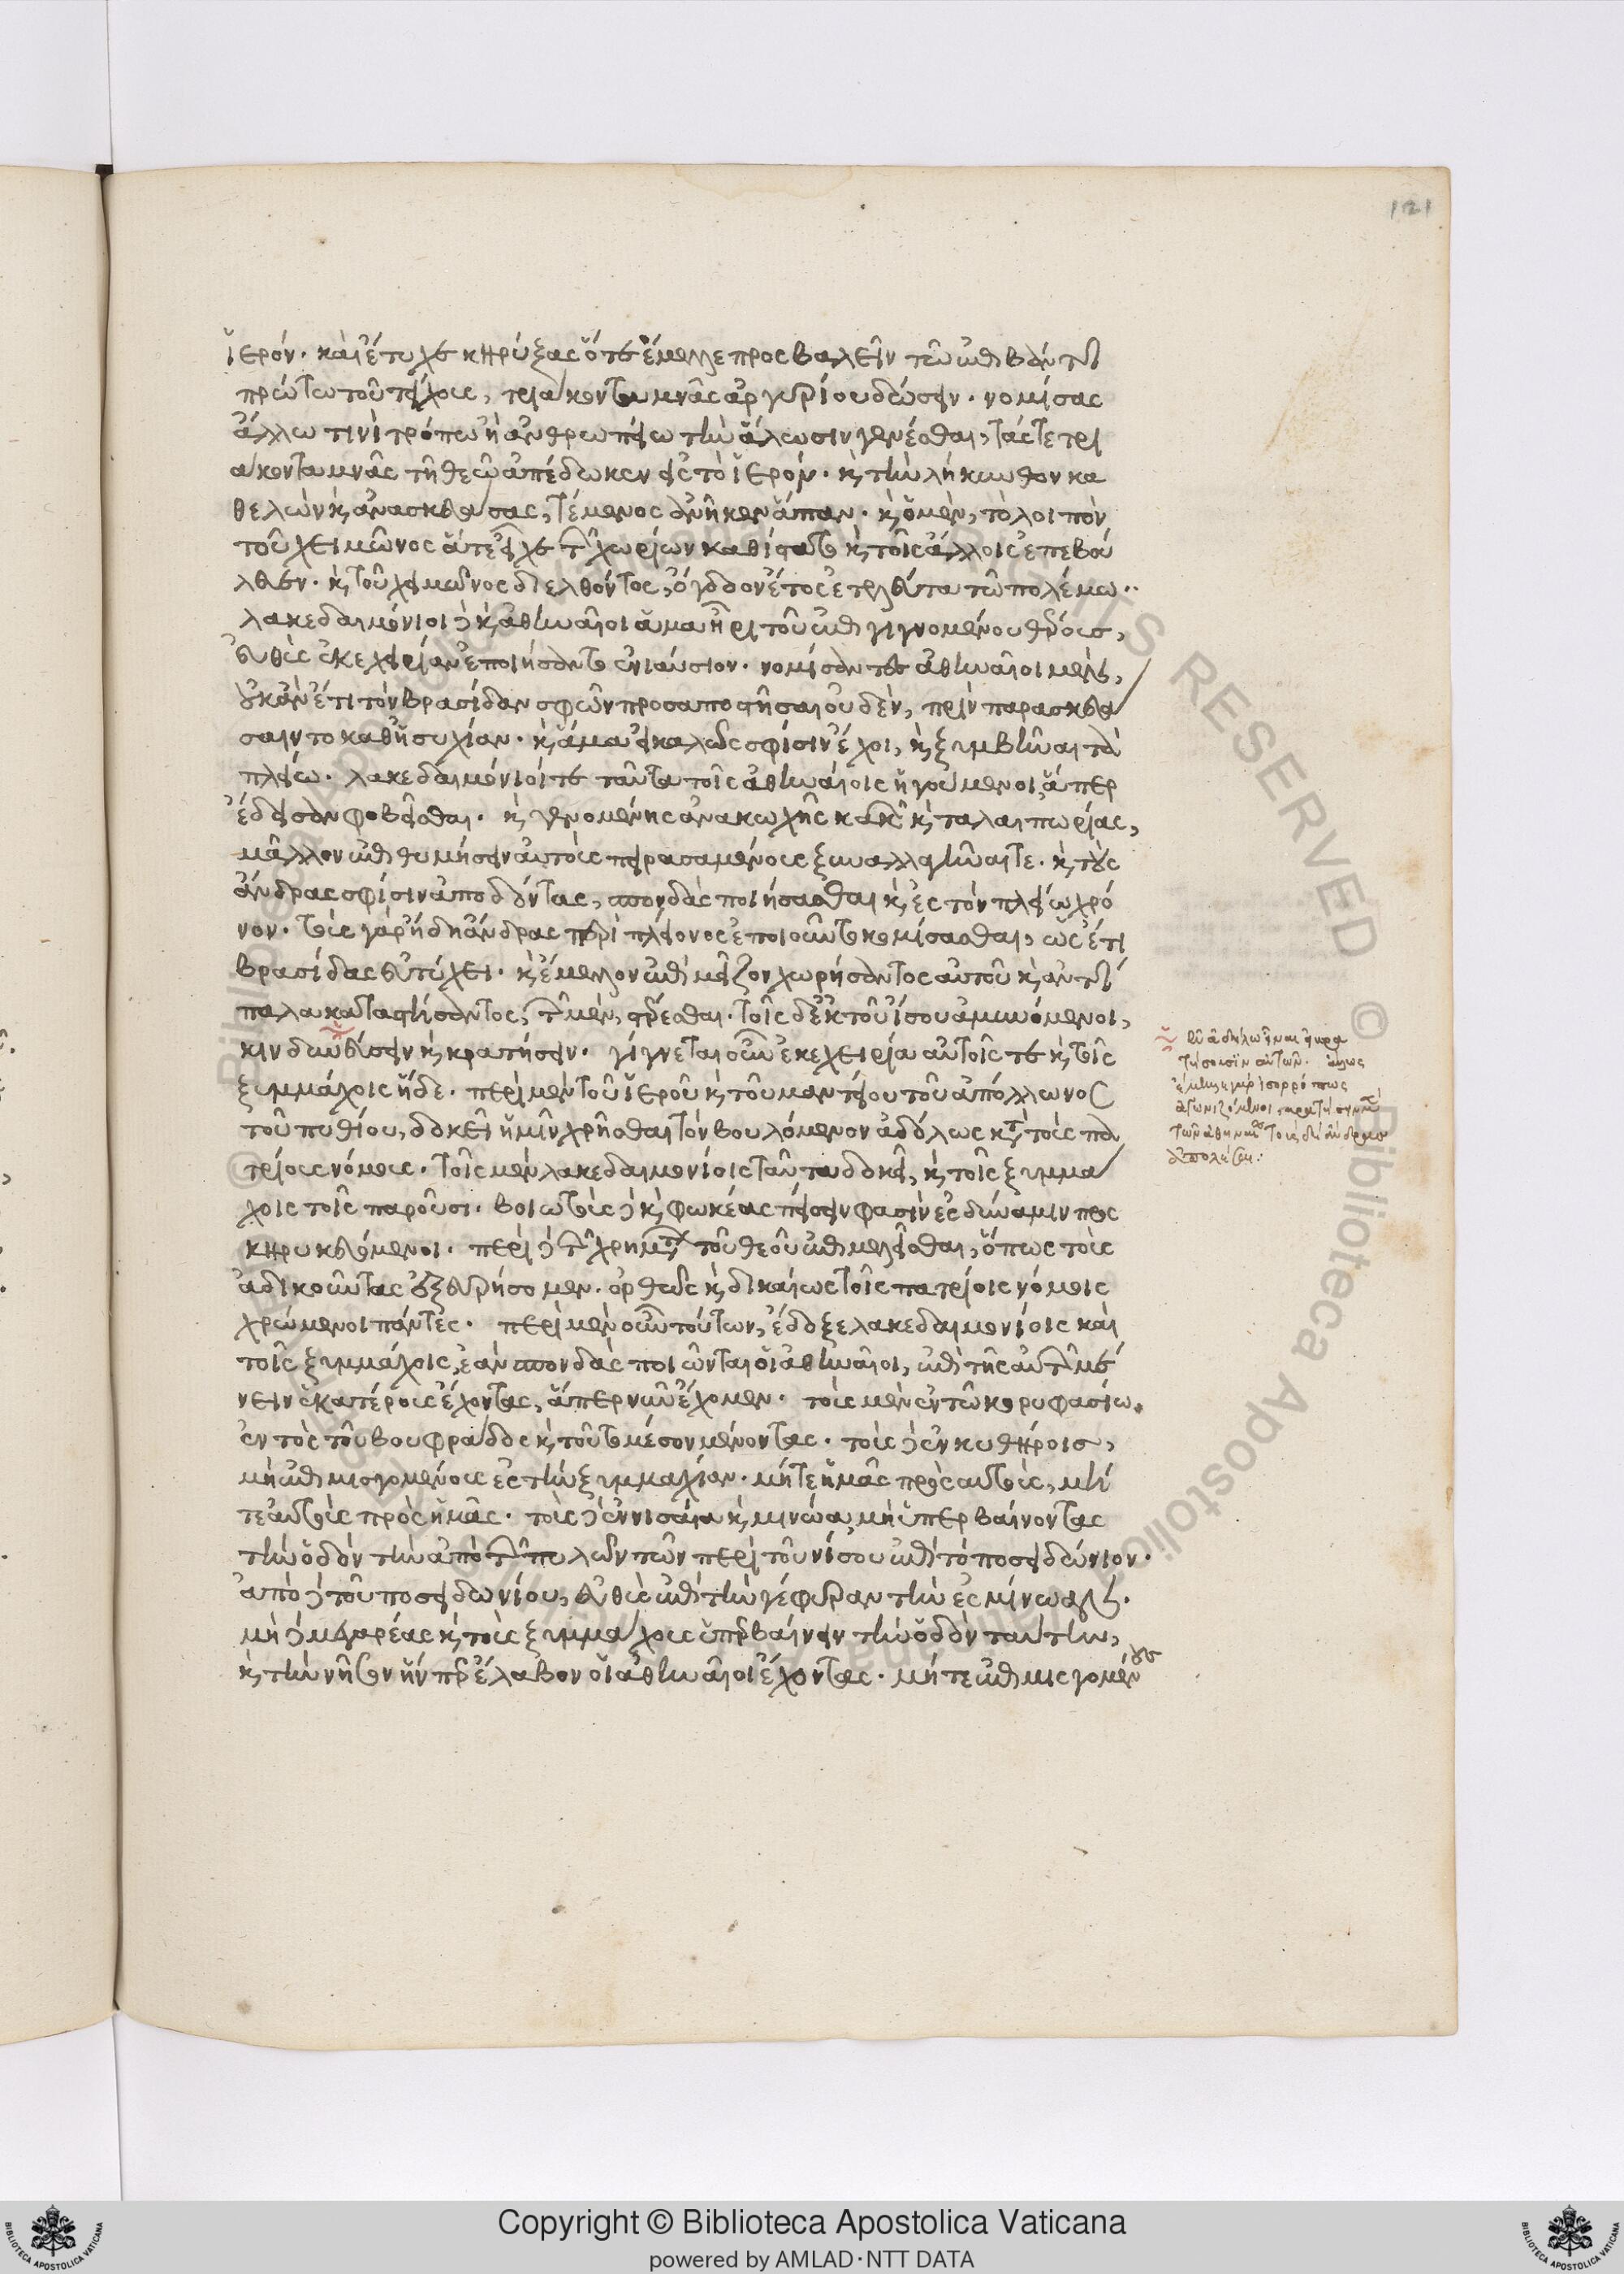 121
ἱερόν. καὶ ἔτυχε κηρύξας ὅτε ἔμελλε προσβαλεῖν τῶ ἐπιβάντι
πρώτω τοῦ τείχους, τριάκοντα μνᾶς ἀργυρίου δώσειν. νομίσας
ἄλλω τινὶ τρόπω ἢ ἀνθρωπείω τὴν ἅλωσιν γενέσθαι, τάς τε τρι
άκοντα μνᾶς τῆ θεῶ ἀπέδωκεν εἰς τὸ ἱερόν. κ τὴν λήκυνθον κα
θελὼν κ ἀνασκευάσας, τέμενος ἀνῆκεν ἅπαν. κ ὁ μὲν, τὸ λοιπὸν
τοῦ χειμῶνος ἅ τε εἶχε τῶν χωρίων καθίστατο κ τοῖς ἄλλοις ἐπεβού
λευεν. κ τοῦ χειμῶνος διελθόντος, ὄγδοον ἔτος ἐτελεύτα τῶ πολέμω..
λακεδαιμόνιοι δὲ κ ἀθηναῖοι ἅμα ἦρι τοῦ ἐπιγιγνομένου θέρους,
εὐθὺς ἐκεχειρίαν ἐποιήσαντο ἐνιαύσιον. νομίσαντες ἀθηναῖοι μὲν,
οὐκ ἂν ἔτι τὸν βρασίδαν σφῶν προσαποστῆσαι οὐδὲν, πρὶν παρασκευά
σαιντο καθ' ἡσυχίαν. κ ἅμα εἰ καλῶς σφίσιν ἔχοι, κ ξυμβῆναι τὰ
πλείω. λακεδαιμόνιοί τε ταῦτα τοὶς ἀθηναίοις ἡγούμενοι, ἅπερ
ἐδεισαν φοβεῖσθαι. κ γενομένης ἀνακωχῆς κακῶν κ ταλαιπωρίας,
μᾶλλον ἐπιθυμήσειν αὐτοὺς πειρασαμένους ξυναλλαγῆναί τε. κ τοὺς
ἄνδρας σφίσιν ἀποδόντας, σπονδὰς ποιήσασθαι κ ἐς τὸν πλείω χρό
νον. τοὺς γὰρ ἤδη ἄνδρας περὶ πλείονος ἐποιοῦντο κομίσασθαι, ὡς ἔτι
βρασίδας εὐτύχει. κ ἔμελλον ἐπὶ μεῖζον χωρήσαντος αὐτοῦ κ ἀντί
παλα καταστήσαντος, τῶν μὲν, στέρεσθαι. τοῖς δ' ἐκ τοῦ ἴσου ἀμυνόμενοι,
κινδυνεύσειν κ κρατήσειν. γίγνεται οὖν ἐκεχειρία αὐτοῖς τε κ τοῖς
ξυμμάχοις ἥδε. περὶ μὲν τοῦ ἱεροῦ κ τοῦ μαντείου τοῦ ἀπόλλωνος
τοῦ πυθίου, δοκεῖ ἡμῖν χρῆσθαι τὸν βουλόμενον ἀδόλως κατὰ τοὺς πα
τρίους νόμους. τοῖς μὲν λακεδαιμονίοις ταῦτα δοκεῖ, κ τοῖς ξυμμά
χοις τοῖς παροῦσι. βοιωτοὺς δὲ κ φωκέας πείσειν φασὶν ἐς δύναμιν προς
κηρυκευόμενοι. περὶ δὲ τῶν χρημάτων τοῦ θεοῦ ἐπιμελεῖσθαι, ὅπως τοὺς
ἀδικοῦντας ἐξευρήσομεν. ὀρθῶς κ δικαίως τοῖς πατρίοις νόμοις
χρώμενοι πάντες. περὶ μὲν οὖν τούτων, ἔδοξε λακεδαιμονίοις καὶ
τοῖς ξυμμάχοις, ἐὰν σπονδὰς ποιῶνται οἱ ἀθηναῖοι, ἐπὶ τῆς αὐτῶν μέ
νειν ἑκατέρους ἔχοντας, ἅπερ νῦν ἔχομεν. τοὺς μὲν ἐν τῶ κορυφασίω.
ἐντὸς τοῦ βουφράδος κ τοῦ τομέσον μένοντας. τοὺς δὲ ἐν κυθήροις,
μὴ ἐπιμισγομένους ἐς τὴν ξυμμαχίαν. μήτε ἡμᾶς πρὸς αὐτοὺς, μή
τε αὐτοὺς πρὸς ἡμᾶς. τοὺς δ' ἐν νισαία κ μινώα, μὴ ὑπερβαίνοντας
τὴν ὁδὸν τὴν ἀπὸ τῶν πυλῶν τῶν περὶ τοῦ νίσου ἐπὶ τὸ ποσειδώνιον.
ἀπὸ δὲ τοῦ ποσειδωνίου, εὐθὺς ἐπὶ τὴν γέφυραν τὴν ἐς μίνωαν.
μὴ δὲ μεγαρέας κ τοὺς ξυμμάχους ὑπερβαίνειν τὴν ὁδὸν ταύτην,
κ τὴν νῆσον ἥνπερ ἔλαβον οἱ ἀθηναῖοι ἔχοντας. μήτε ἐπιμισγομένους
ἀγωνιζόμενοι